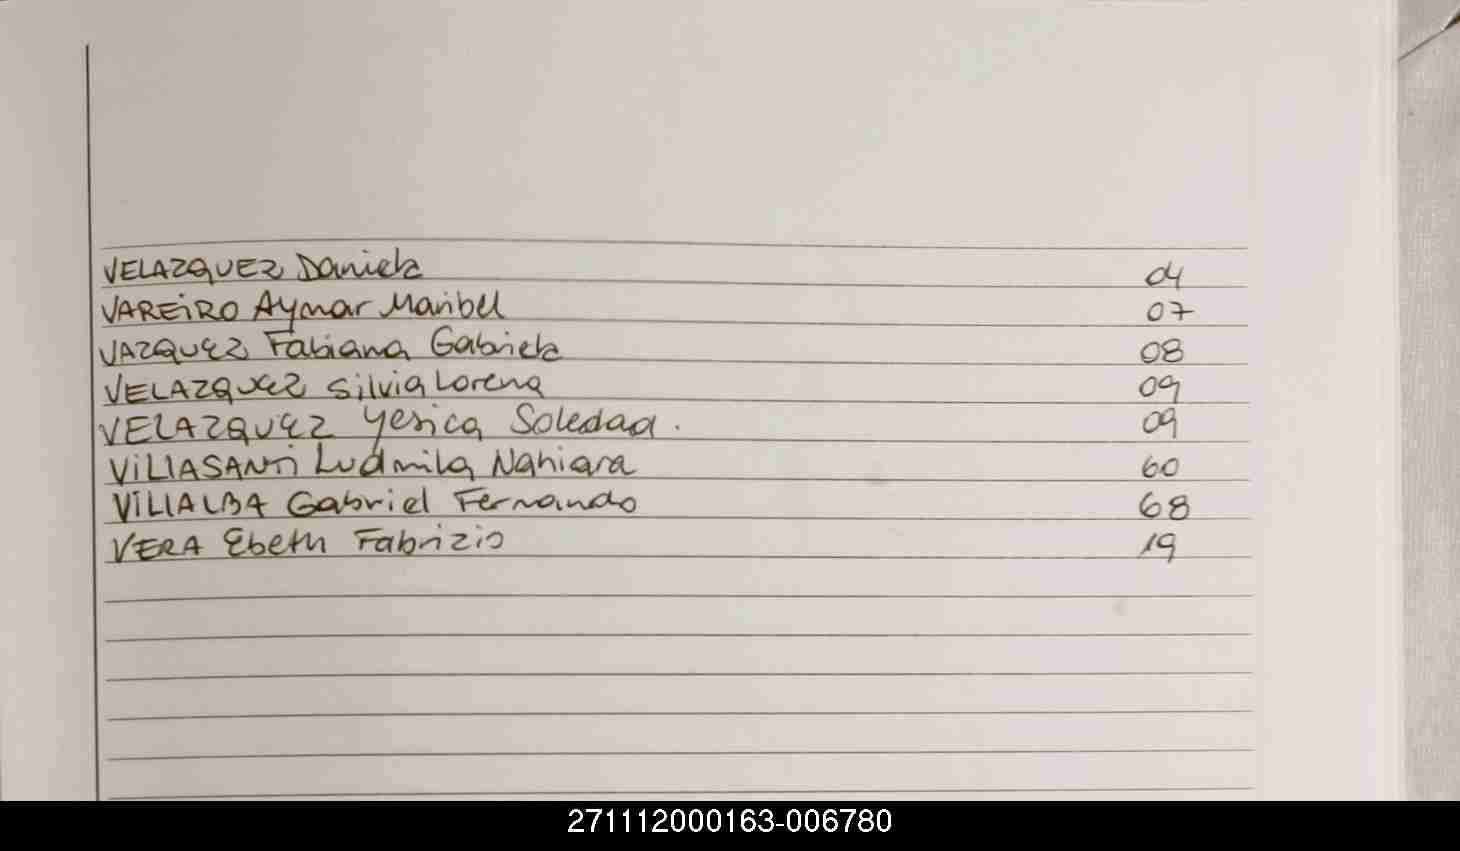 VELAZQUEZ Daniela 04
VAREiRO Aymar Maribel 07
VAZQUEZ Fabiana Gabriela 08
VELAZQUEZ Silvia Lorena 09
VELAZQUEZ Yesica Soledad. 09
ViLLASANTi Ludmila Nahiara 60
ViLLALBA Gabriel Fernando 68
VERA Ebeth Fabrizio 19
271112000163-006780